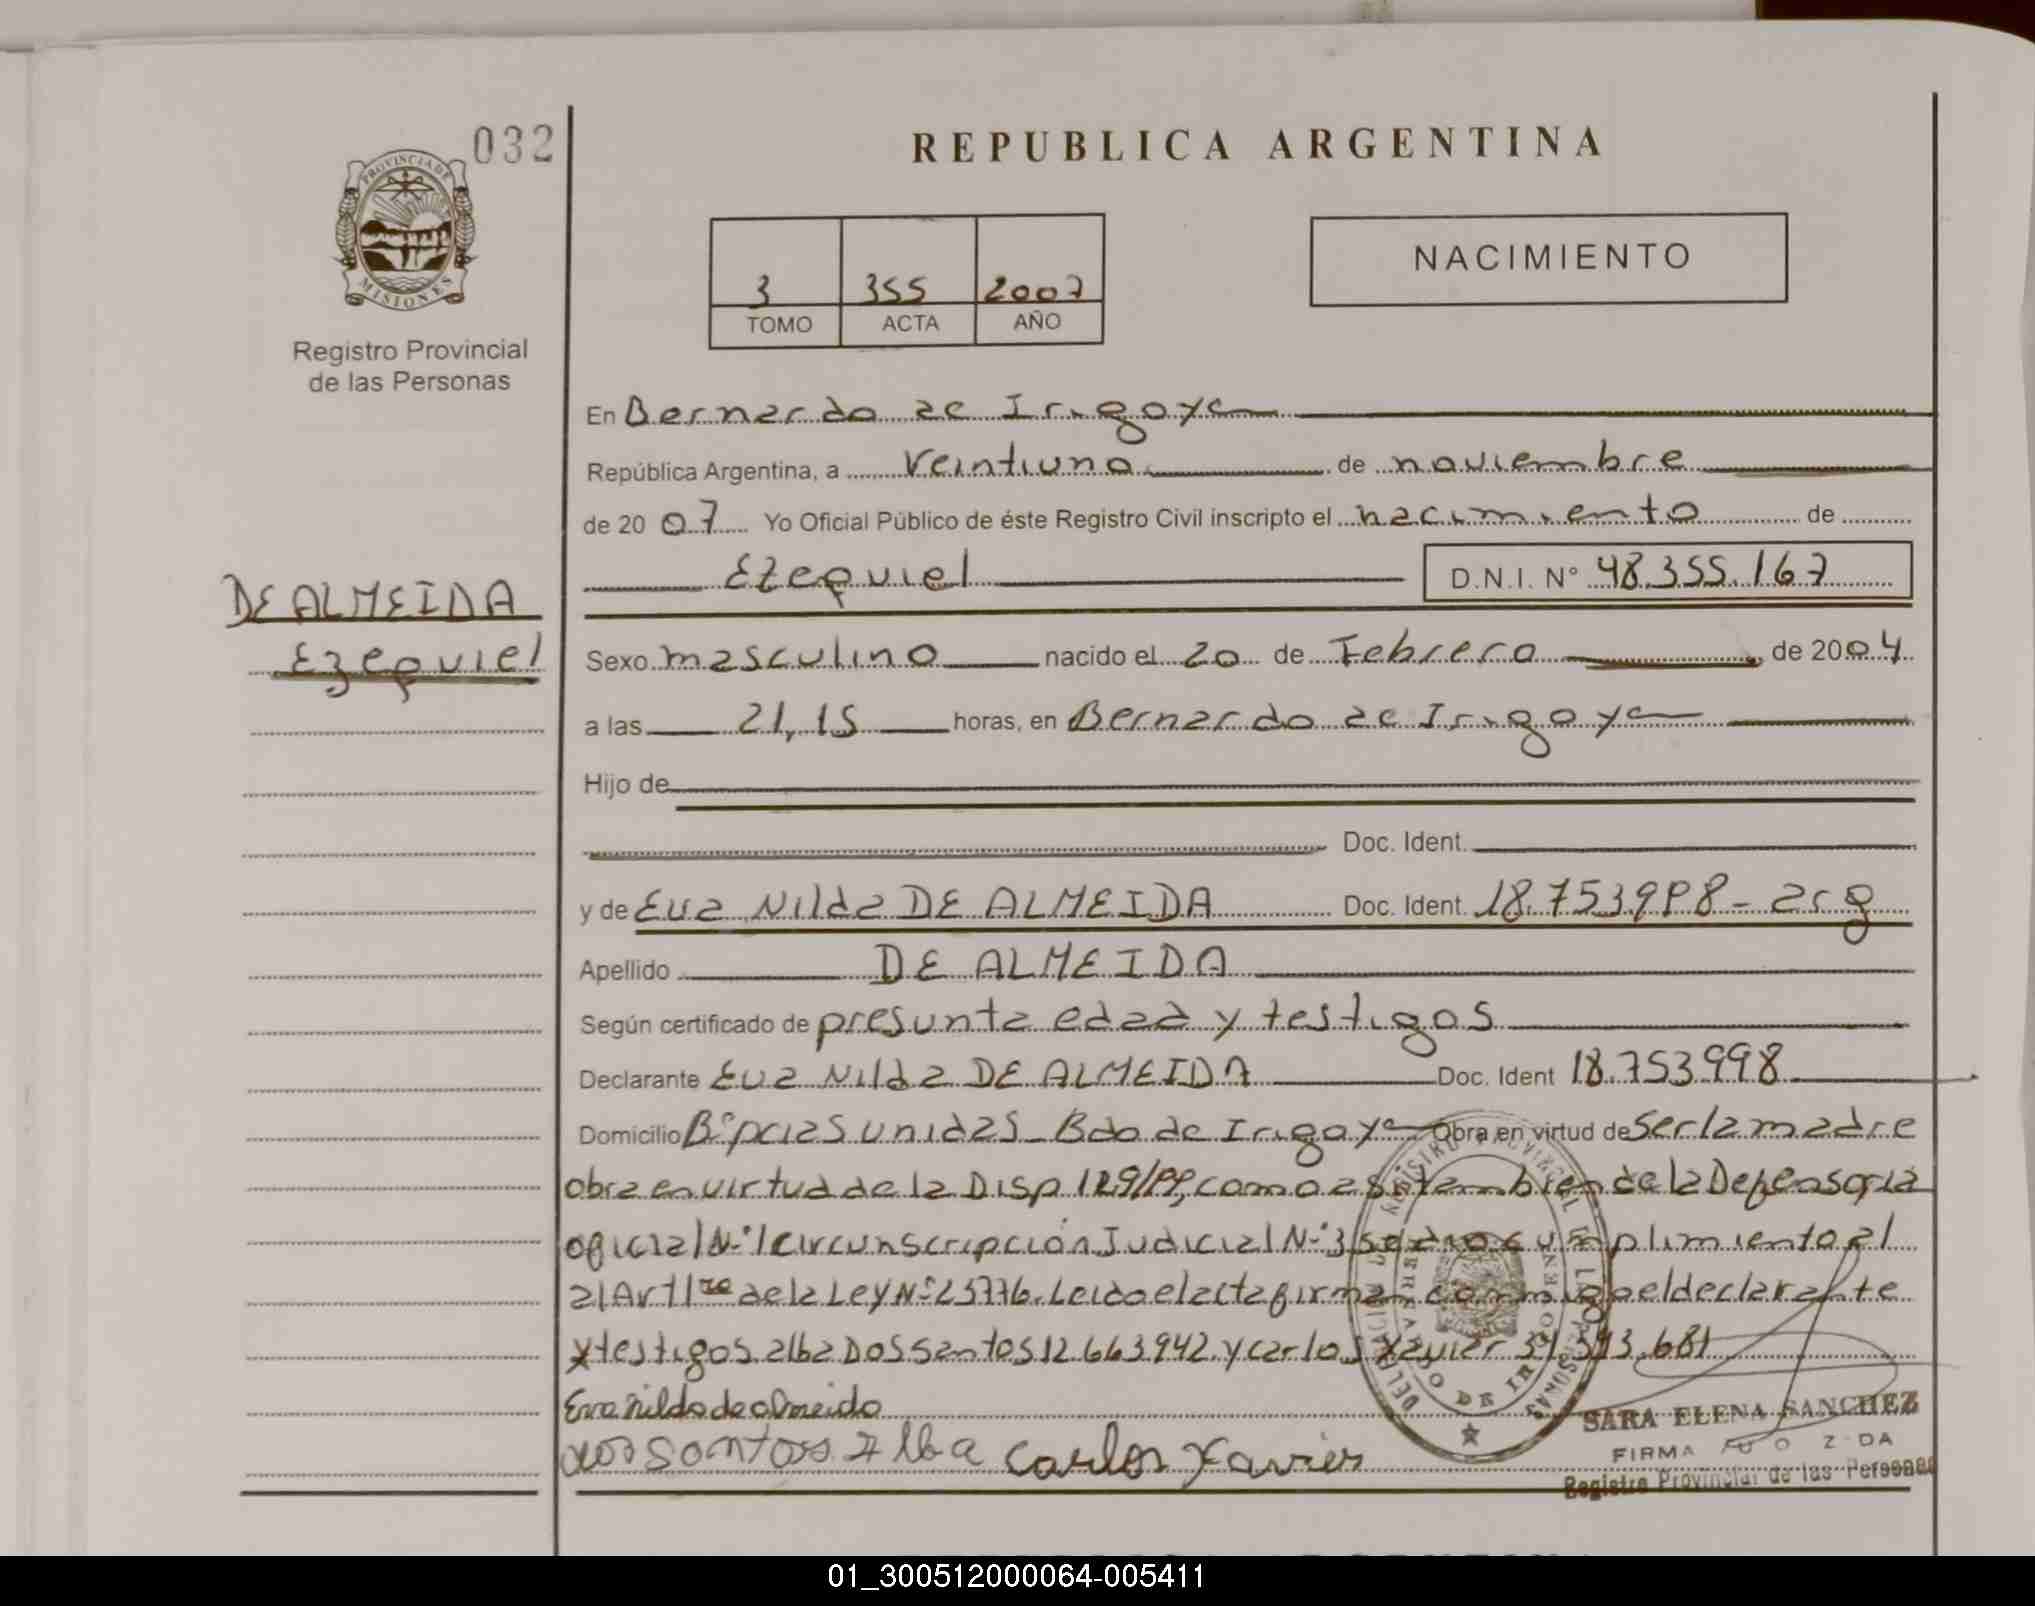 032
PROVINCIA DE
MISIONES
Registro Provincial
de las Personas
REPUBLICA ARGENTINA
3 355 2007
TOMO ACTA AÑO
NACIMIENTO
DE ALMEIDA
Ezequiel
En Bernardo de Irigoyen
República Argentina, a Veintiuno de noviembre
de 20 07 Yo Oficial Público de éste Registro Civil inscripto el nacimiento de
Ezequiel D.N.I. N° 48.355.167
Sexo masculino nacido el 20 de Febrero de 2004
a las 21,15 horas, en Bernardo de Irigoyen
Hijo de
Doc. Ident.
y de Eva Nilda DE ALMEIDA Doc. Ident. 18.753.998 - arg
Apellido DE ALMEIDA
Según certificado de presunta edad y testigos
Declarante Eva Nilda DE ALMEIDA Doc. Ident 18.753998
Domicilio B° pcias unidas - Bdo de Irigoyen Obra en virtud de ser la madre
obra en virtud de la Disp 129/99, como asi tambien de la Defensoria
oficial N° 1 circunscripción Judicial N° 3 cumplimiento al
al Art 1ro de la Ley N° 25776. Leida el acta firman conmigo el declarante
y testigos alba Dos santos 12.663942. y carlos Xavier 34.593.681
Eva nilda de almeida
dos santos Alba Carlos Xavier
SARA ELENA SANCHEZ
FIRMA
Registro Provincial de las Personas
01_300512000064-005411